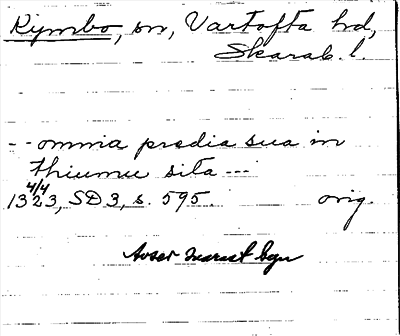 Kymbo, sn, Vartofta hd,
Skarab. l.
- - omnia predia sua in
thiumu sita ---
4/4
1323, SD 3, s. 595. orig.
Avser snarast byn